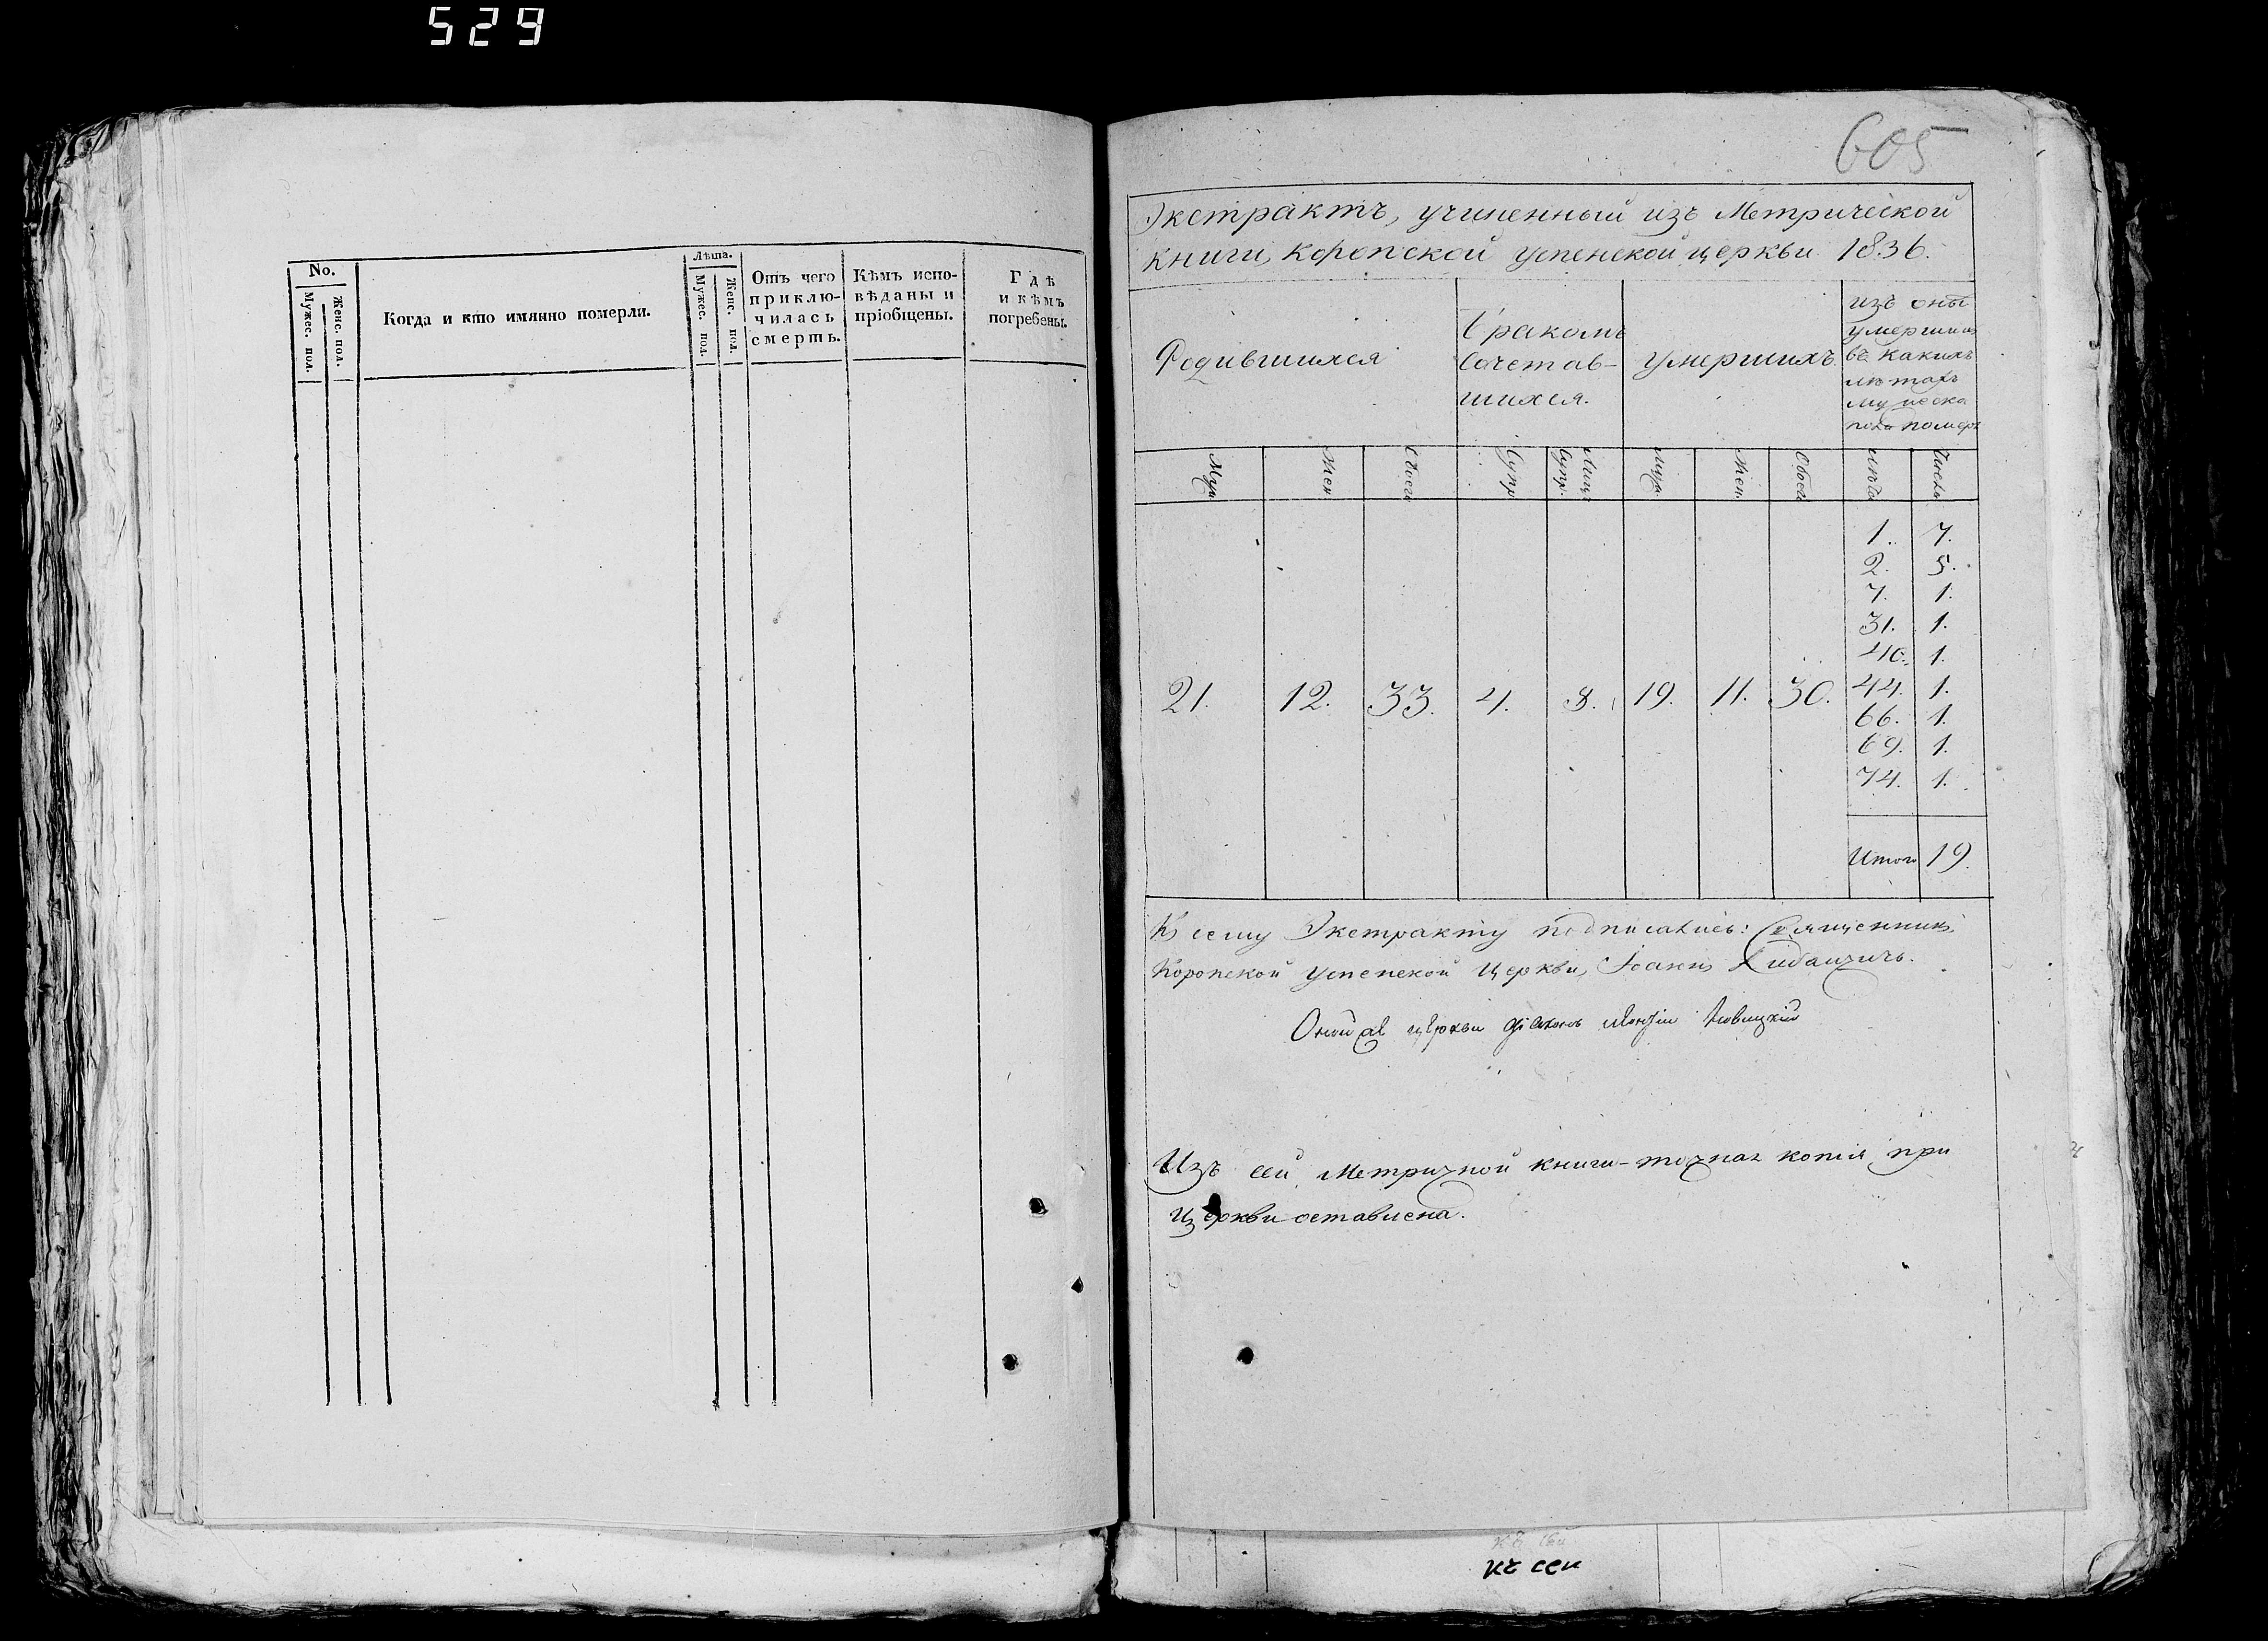 529
No.
Мужес. пол.
Женс. пол.
Когда и кто имянно померли.
Лѣта.
Мужес. пол.
Женс. пол.
Отъ чего
приклю-
чилась
смерть.
Кѣмъ испо-
вѣданы и
пріобщены.
Гдѣ
и кѣмъ
погребены.
605
Экстрактъ, учиненный изъ Метрической
книги, Коропской успенской церкви 1836.
Родившихся
Бракомъ
Сочетав-
шихся.
Умершихъ
изъ оны
умершихъ
въ какихъ
лѣтахъ
муже
пола помер
Муж
Жен
Обоего
Супр
Лицъ
Супр.
Муж.
Жен.
Обоего
лѣта
Число
1. 7.
2. 5.
7. 1.
31. 1.
40. 1.
21. 12. 33. 4. 8. 19. 11. 30. 44. 1.
66. 1.
69. 1.
74. 1.
Итого 19.
Къ сему Экстракту подписались: Священникъ
Коропской успенской Церкви, Іоаннъ
Оной же церкви діаконъ
Изъ сей Метричной книги точная копія при
Церкви оставлена.
къ сей